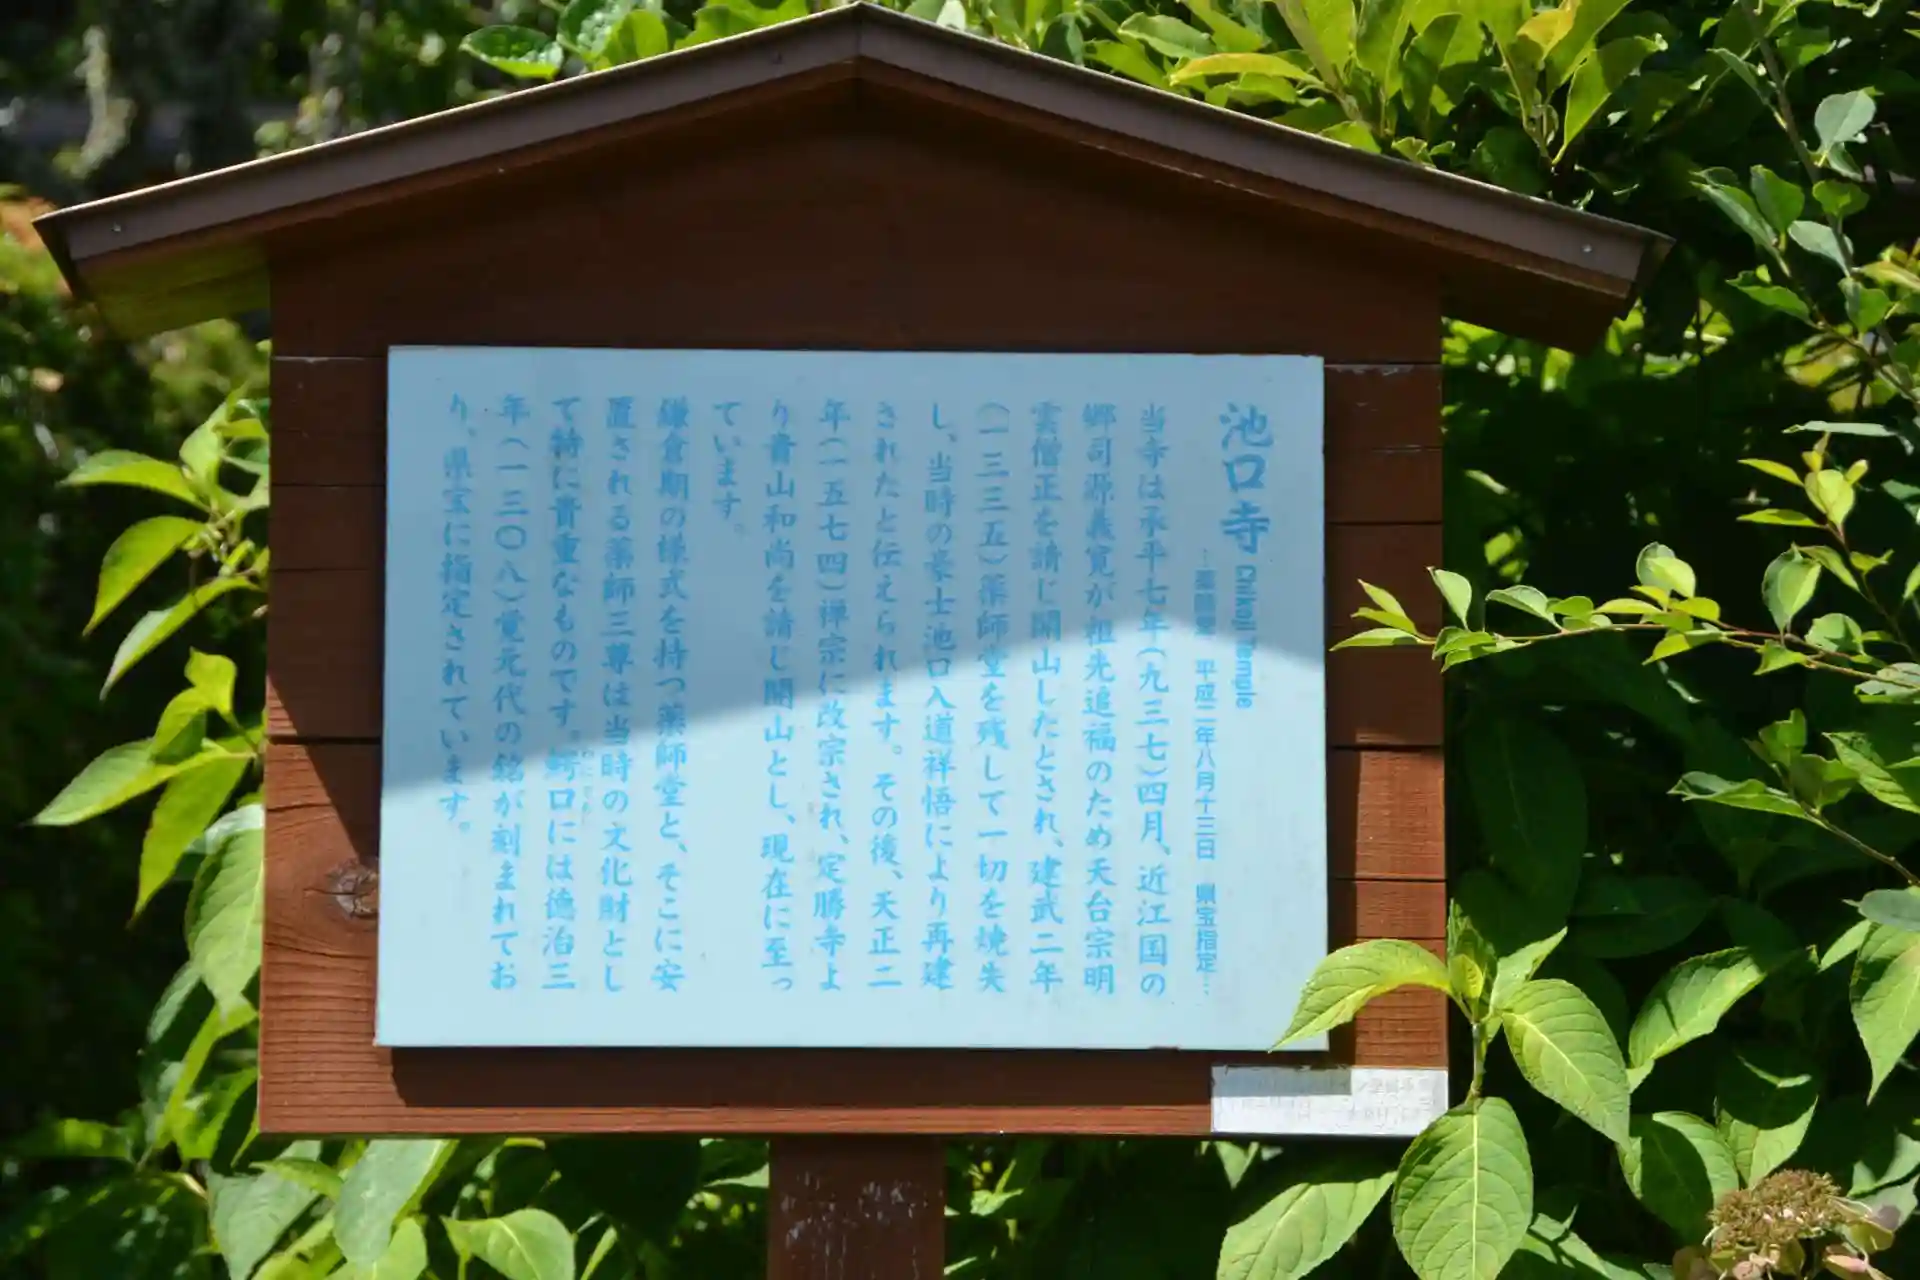 池口寺 Chikoji Temple
…薬師堂 平成二年八月十三日 県宝指定…
当寺は承平七年(九三七)四月、近江国の
郷司源義寛が祖先追福のため天台宗明
雲僧正を請じ開山したとされ、建武二年
(一三三五)薬師堂を残して一切を焼失
し、当時の豪士池口入道祥悟により再建
されたと伝えられます。その後、天正二
年(一五七四)禅宗に改宗され、定勝寺よ
り貴山和尚を請じ開山とし、現在に至っ
ています。
鎌倉期の様式を持つ薬師堂と、そこに安
置される薬師三尊は当時の文化財とし
て特に貴重なものです。鰐口には徳治三
年(一三〇八)覚元代の銘が刻まれてお
り、県宝に指定されています。